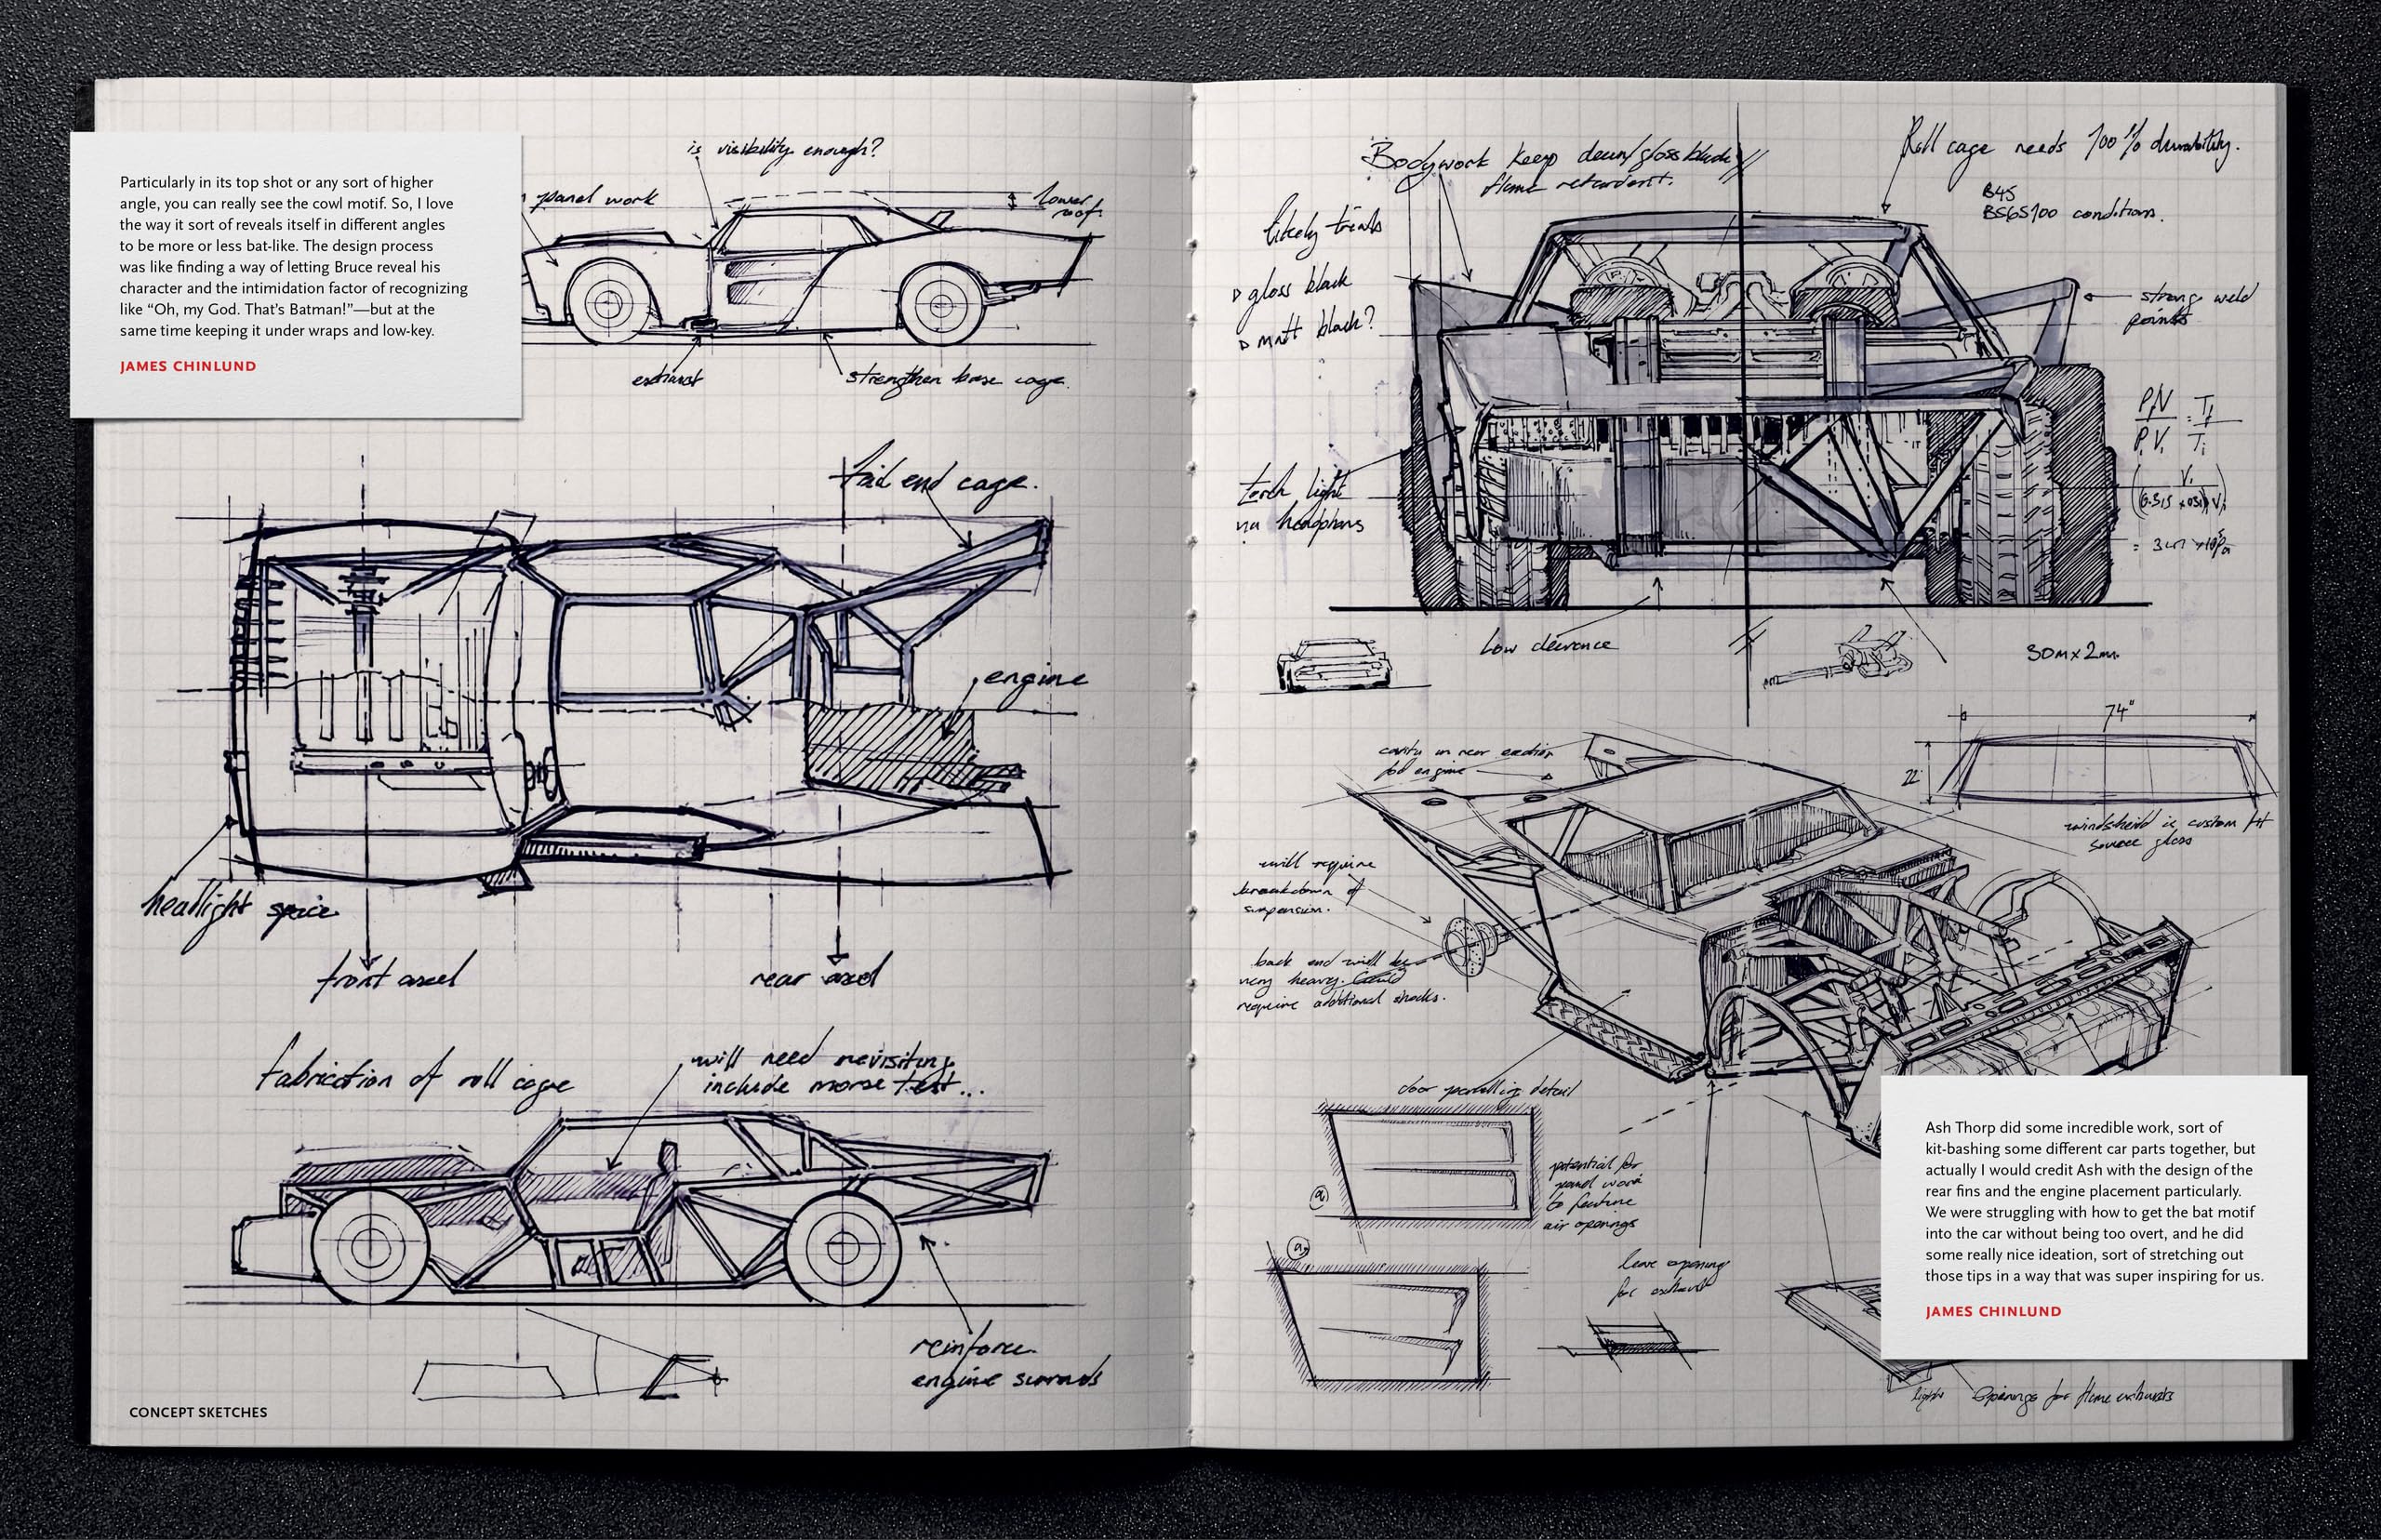 Particularly in its top shot or any sort of higher
angle, you can really see the cowl motif. So, I love
the way it sort of reveals itself in different angles
to be more or less bat-like. The design process
was like finding a way of letting Bruce reveal his
character and the intimidation factor of recognizing
like “Oh, my God. That’s Batman!”—but at the
same time keeping it under wraps and low-key.
JAMES CHINLUND
is visibility enough?
panel work
lower
roof.
exhaust
strengthen base cage.
tail end cage.
engine
headlight space
front axel
rear axel
fabrication of roll cage
will need revisiting
include morse test...
reinforce
engine surrounds
CONCEPT SKETCHES
Bodywork keep deum/gloss black
flame retardent.
Roll cage needs 100% durability.
B45
BS65100 conditions.
likely trials
gloss black
matt black?
strong weld
points
torch light
via headphones
Low clearance
30mx2m
74"
22"
cavity in rear section
for engine
windsheild is custom fit
source glass
will require
breakdown of
suspension.
back end will be
very heavy. Could
require additional shocks.
door panelling detail
a
potential for
panel work
to feature
air openings
a
leave opening
for exhaust
light
Openings for flame exhausts
Ash Thorp did some incredible work, sort of
kit-bashing some different car parts together, but
actually I would credit Ash with the design of the
rear fins and the engine placement particularly.
We were struggling with how to get the bat motif
into the car without being too overt, and he did
some really nice ideation, sort of stretching out
those tips in a way that was super inspiring for us.
JAMES CHINLUND